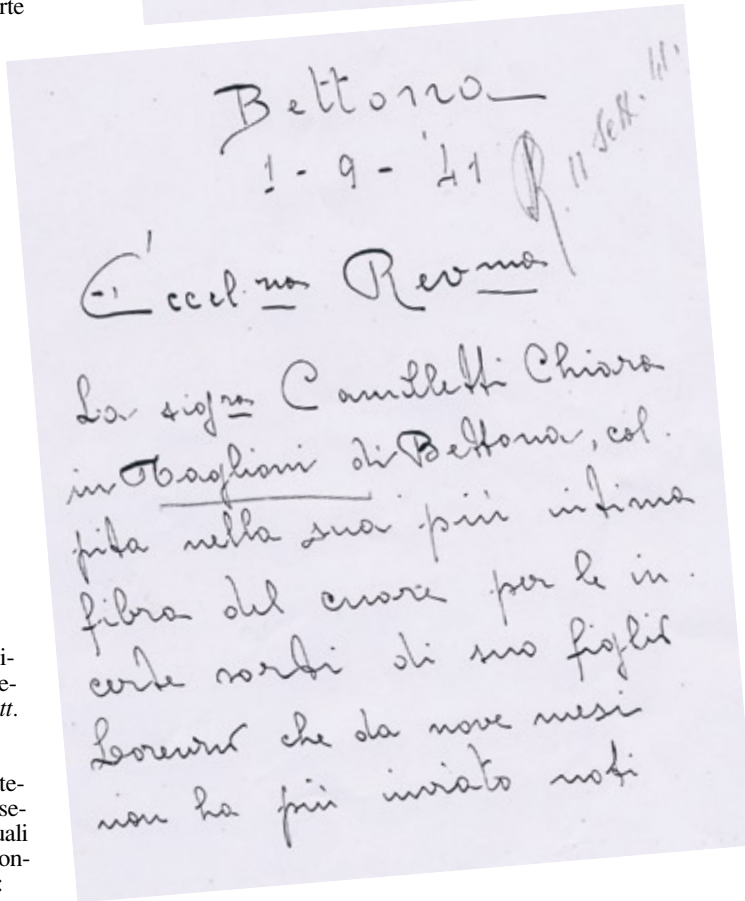 rte
Bettona
1-9-'41
R. 11 Sett. 41.
Eccel.ma Rev.ma
La sig.ra Camilletti Chiara
in Taglioni di Bettona, col.
pita nella sua più intima
fibra del cuore per le in.
certe sorti di suo figlio
Lorenzo che da nove mesi
non ha più inviato noti
i-
e-
tt.
te-
se-
uali
on-
: